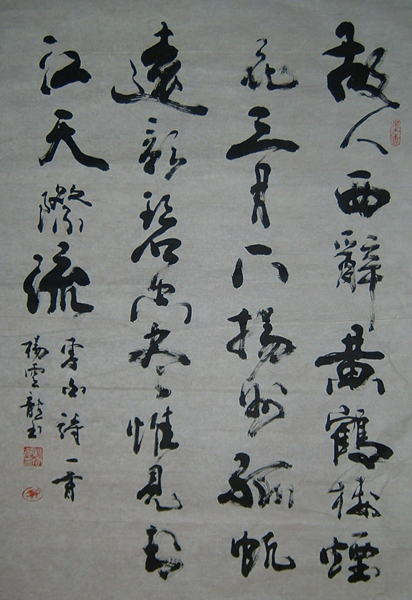 故人西辭黄鶴楼煙
花三月下揚州孤帆
遠影碧空尽惟見長
江天際流
李白詩一首
楊雲龍書